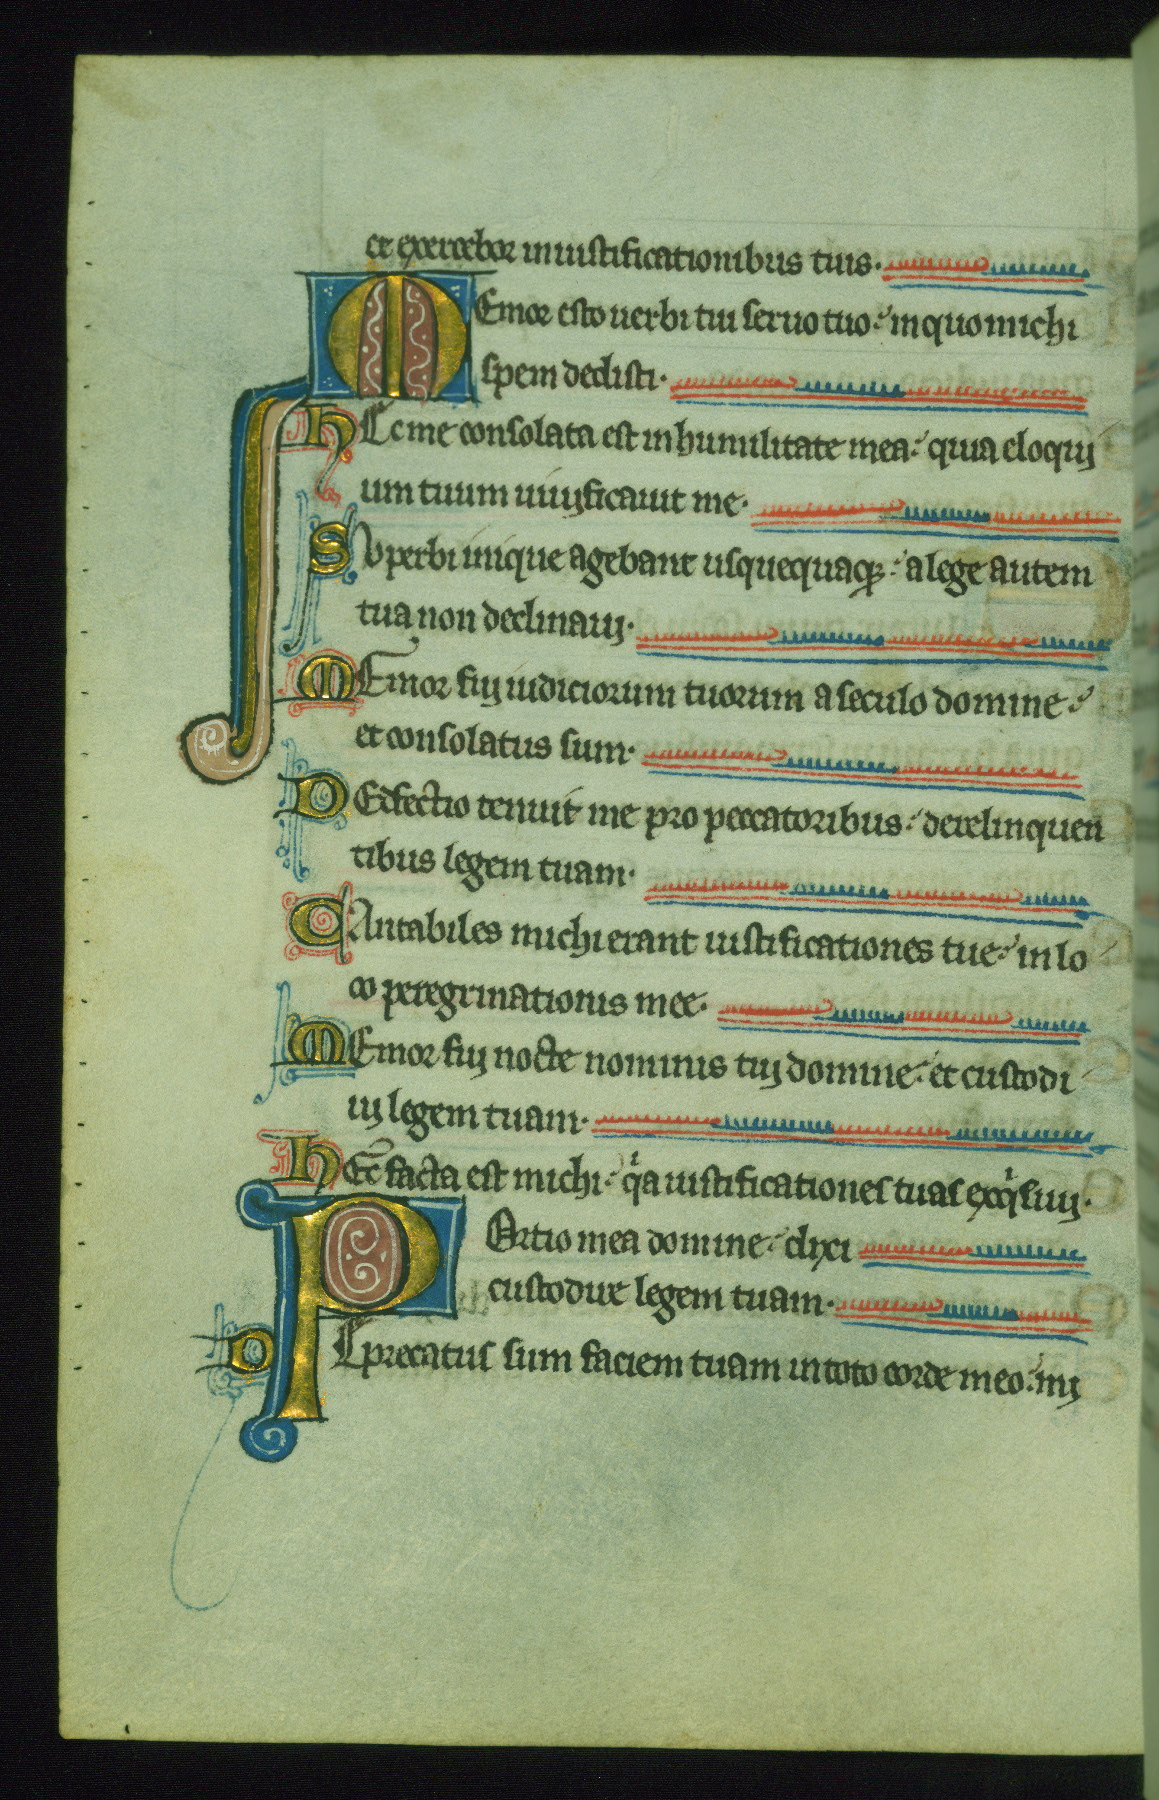 et exercebor in iustificationibus tuis.
MEmor esto uerbi tui seruo tuo: in quo michi
spem dedisti.
hEc me consolata est in humilitate mea: quia eloqui
um tuum uiuificauit me.
SUperbi inique agebant usquequaqȝ: a lege autem
tua non declinaui.
MEmor fui iudiciorum tuorum a seculo domine:
et consolatus sum.
DEfectio tenuit me pro peccatoribus: derelinquen
tibus legem tuam.
CAntabiles michi erant iustificationes tue: in lo
co peregrinationis mee.
MEmor fui nocte nominis tui domine: et custodi
ui legem tuam.
hEc facta est michi: qͥa iustificationes tuas exqͥsiui.
POrtio mea domine: dixi
custodire legem tuam.
DEprecatus sum faciem tuam in toto corde meo: mi